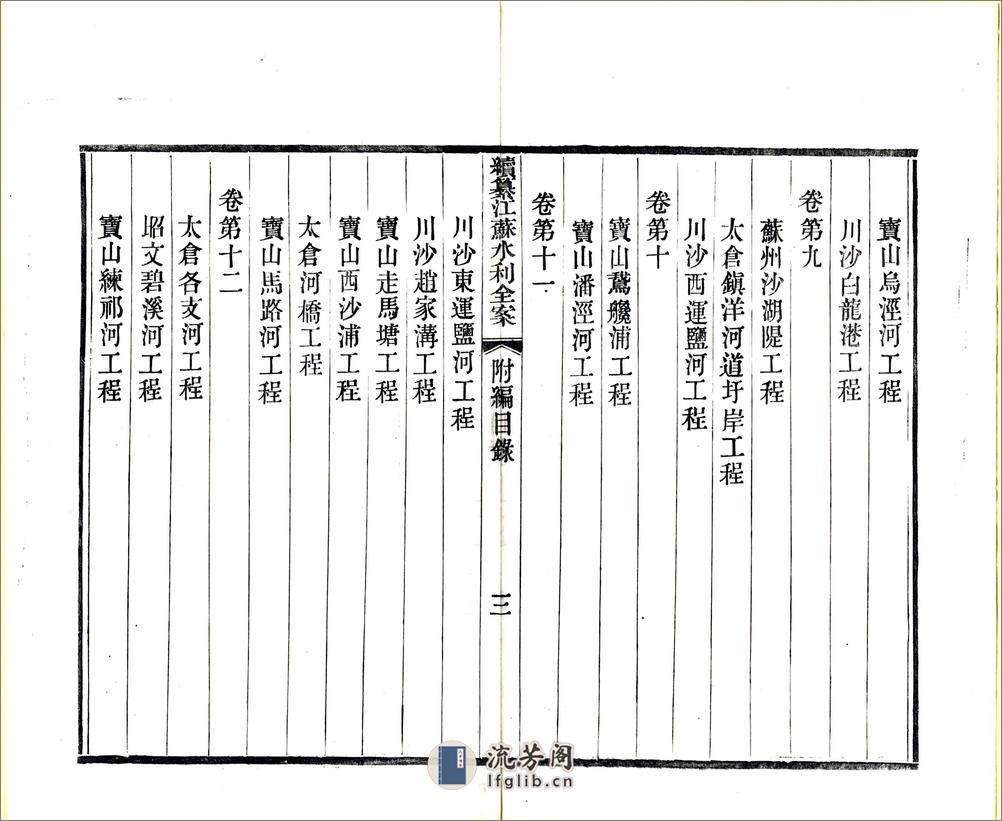 寶山烏涇河工程
川沙白龍港工程
卷第九
蘇州沙湖隄工程
太倉鎮洋河道圩岸工程
川沙西運鹽河工程
卷第十
寶山鵞艬浦工程
寶山潘涇河工程
卷第十一
續纂江蘇水利全案
附編目錄
三
川沙東運鹽河工程
川沙趙家溝工程
寶山走馬塘工程
寶山西沙浦工程
太倉河橋工程
寶山馬路河工程
卷第十二
太倉各支河工程
昭文碧溪河工程
寶山練祁河工程
流芳阁
lfglib.cn